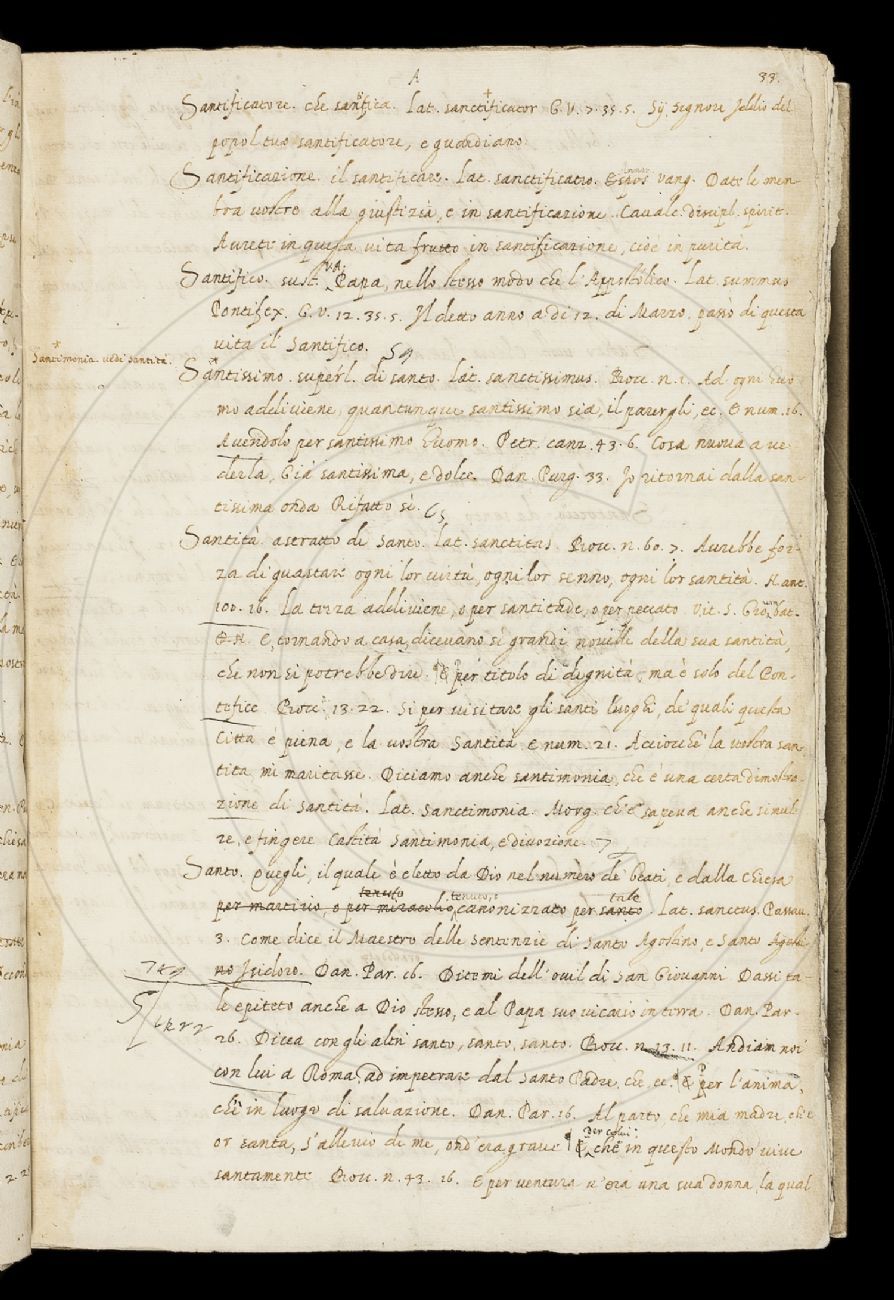 A
33.
Santificatore. che santifica. Lat. sanctificator G. V. 7. 35. 5. Sij Signore Iddio del
popol tuo santificatore, e guardiano.
Santificazione. il santificare. Lat. sanctificatio. vang. Date le mem-
bra vostre alla giustizia, e in santificazione. Cavalc. discipl. spirit.
Avrete in questa vita frutto in santificazione, cioè in purità.
Santifico. sust. V.A. Papa, nello stesso modo che l'Appostolico. Lat. summus
Pontifex. G. V. 12. 35. 5. Il detto anno a dì 12. di Marzo. passò di questa
vita il Santifico.
Santimonia. vedi santità.
Santissimo. superl. di santo. Lat. sanctissimus. Bocc. n. 1. Ad ogni huo
mo addiviene, quantunque santissimo sia, il parergli, ec. E num. 16.
Avendolo per santissimo huomo. Petr. canz. 43. 6. Cosa nuova a ve-
derla, Già santissima, e dolce. Dan. Purg. 33. Io ritornai dalla san-
tissima onda Rifatto sì.
Santità. astratto di Santo. Lat. sanctitas. Bocc. n. 60. 7. Avrebbe for-
za di guastare ogni lor virtù, ogni lor senno, ogni lor santità. M. ant.
100. 16. La terza addiviene, o per santitade, o per peccato. Vit. S. Gio. bat.
E, tornando a casa, dicevano sì grandi novelle della sua santità,
che non si potrebbe dire. per titolo di dignità, ma è solo del Pon-
tefice. Bocc. 13. 22. Si per visitare gli santi luoghi, de' quali questa
Città è piena, e la vostra Santità. E num. 21. Acciocchè la vostra san-
tità mi maritasse. Diciamo anche santimonia, che è una certa dimostra-
zione di santità. Lat. Sanctimonia. Morg. ch'e' sapeva anche simul-
re, e fingere Castità Santimonia, e divozione.
Santo. Quegli, il quale è eletto da Dio nel numero de' beati, e dalla chiesa
tenuto, tale
per martirio, o per miracolo canonizzato per santo. Lat. sanctus. Passav.
3. Come dice il Maestro delle Sentenzie di Santo Agostino, e Santo
Isidoro. Dan. Par. 16. Ditemi dell'ovil di San Giovanni. Dassi ta-
le epiteto anche a Dio stesso, e al Papa suo vicario in terra. Dan. Par.
26. Dicea con gli altri santo, santo, santo. Bocc. n. 13. 11. Andiam noi
con lui a Roma, ad impetrare dal Santo Padre, che ec. per l'anima,
ch'è in luogo di salvazione. Dan. Par. 16. Al parto, che mia madre, ch'è
per colui:
or santa, s'allevio di me, ond'era grave che in questo Mondo vive
santamente. Bocc. n. 43. 16. E per ventura v'era una sua donna, la qual